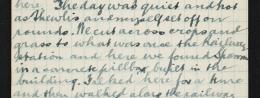 here. The day was quiet and hot
as Thewlis and myself set off on
rounds. We cut across crops and
grass to what was once the railway
station and here we found
in a concrete pillbox built in the
building. I talked there for a time
and then walked along the railway